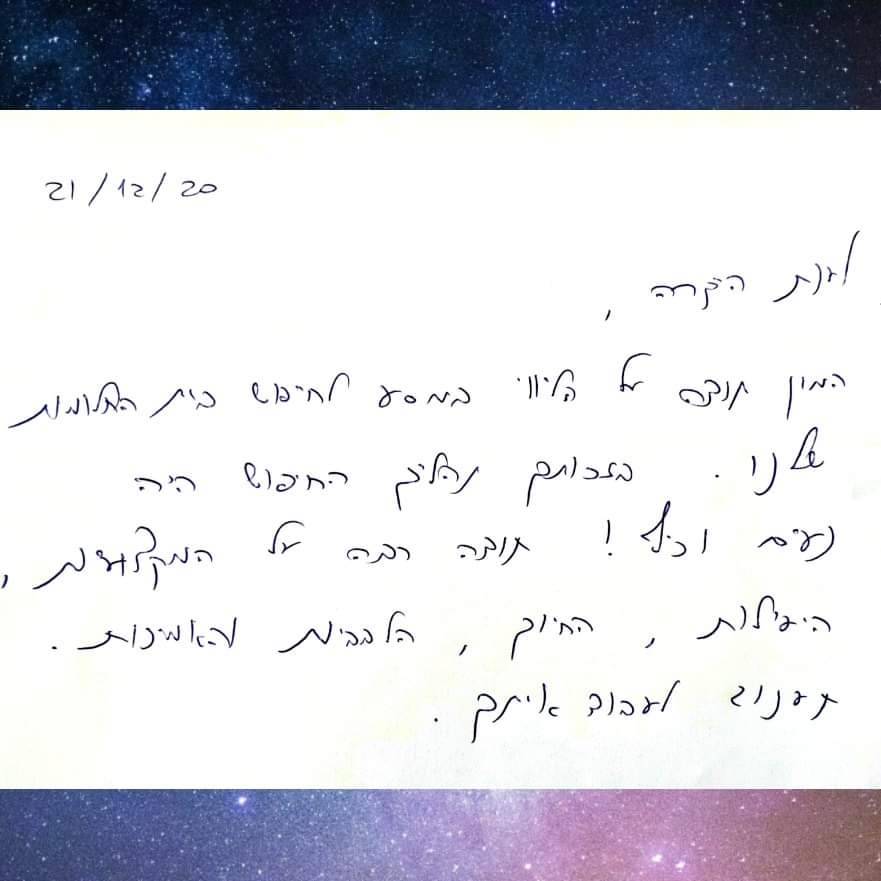 21/12/20
לענת היקרה,
המון תודה על הליווי במסע לחיפוש בית החלומות
שלנו. בזכותך תהליך החיפוש היה
נעים וכיף! תודה רבה על המקצועיות,
היעילות, החיוך, הלבביות והאמינות.
תענוג לעבוד איתך.